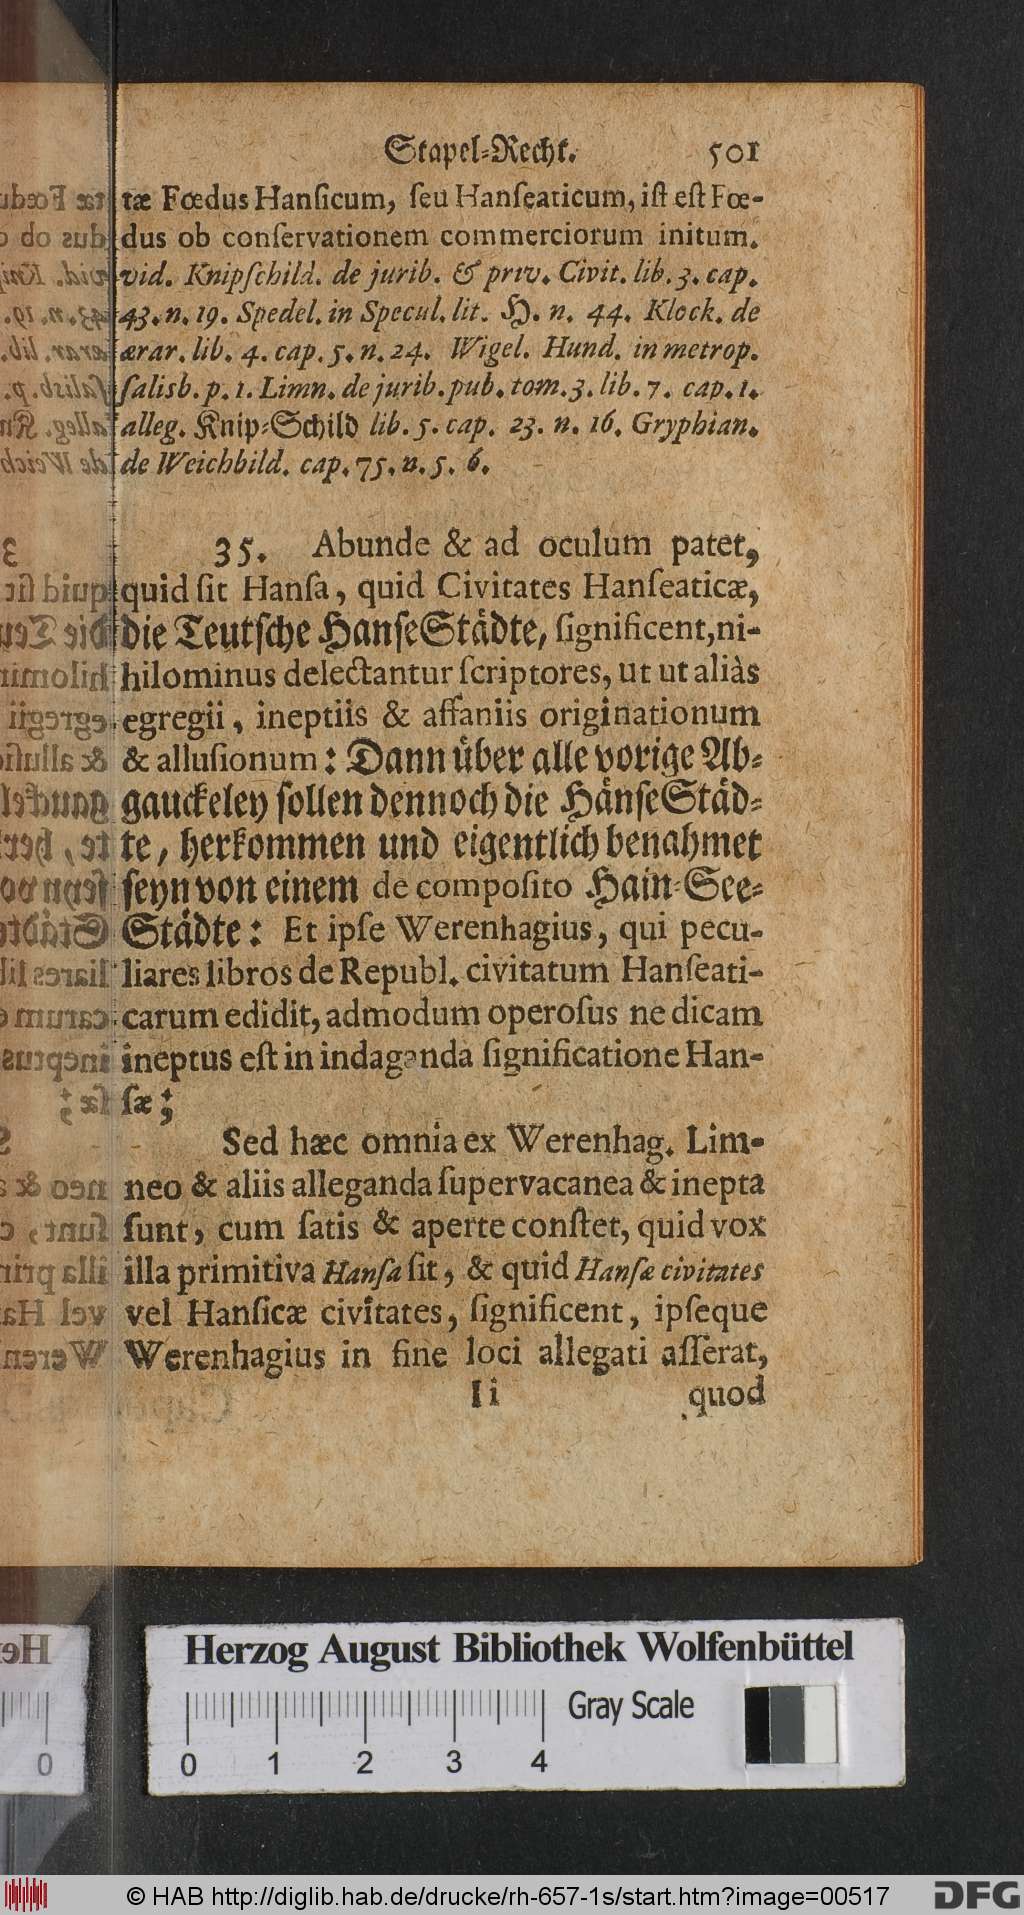 Stapel-Recht. 501
tæ Fœdus Hansicum, seu Hanseaticum, ist est Fœ-
dus ob conservationem commerciorum initum.
vid. Knipschild. de jurib. & priv. Civit. lib. 3. cap.
43. n. 19. Spedel. in Specul. lit. H. n. 44. Klock. de
ærar. lib. 4. cap. 5. n. 24. Wigel. Hund. in metrop.
salisb. p. 1. Limn. de jurib. pub. tom. 3. lib. 7. cap. 1.
alleg. Knip-Schild lib. 5. cap. 23. n. 16. Gryphian.
de Weichbild. cap. 75. n. 5. 6.
35. Abunde & ad oculum patet,
quid sit Hansa, quid Civitates Hanseaticæ,
die Teutsche HanseStädte, significent, ni-
hilominus delectantur scriptores, ut ut aliàs
egregii, ineptiis & affaniis originationum
& allusionum: Dann über alle vorige Ab-
gauckeley sollen dennoch die HänseStäd-
te, herkommen und eigentlich benahmet
seyn von einem de composito Hain-See-
Städte: Et ipse Werenhagius, qui pecu-
liares libros de Republ. civitatum Hanseati-
carum edidit, admodum operosus ne dicam
ineptus est in indaganda significatione Han-
sæ;
Sed hæc omnia ex Werenhag. Lim-
neo & aliis alleganda supervacanea & inepta
sunt, cum satis & aperte constet, quid vox
illa primitiva Hansa sit, & quid Hansæ civitates
vel Hansicæ civitates, significent, ipseque
Werenhagius in fine loci allegati asserat,
Ii quod
Herzog August Bibliothek Wolfenbüttel
Gray Scale
0 1 2 3 4
© HAB http://diglib.hab.de/drucke/rh-657-1s/start.htm?image=00517
DFG